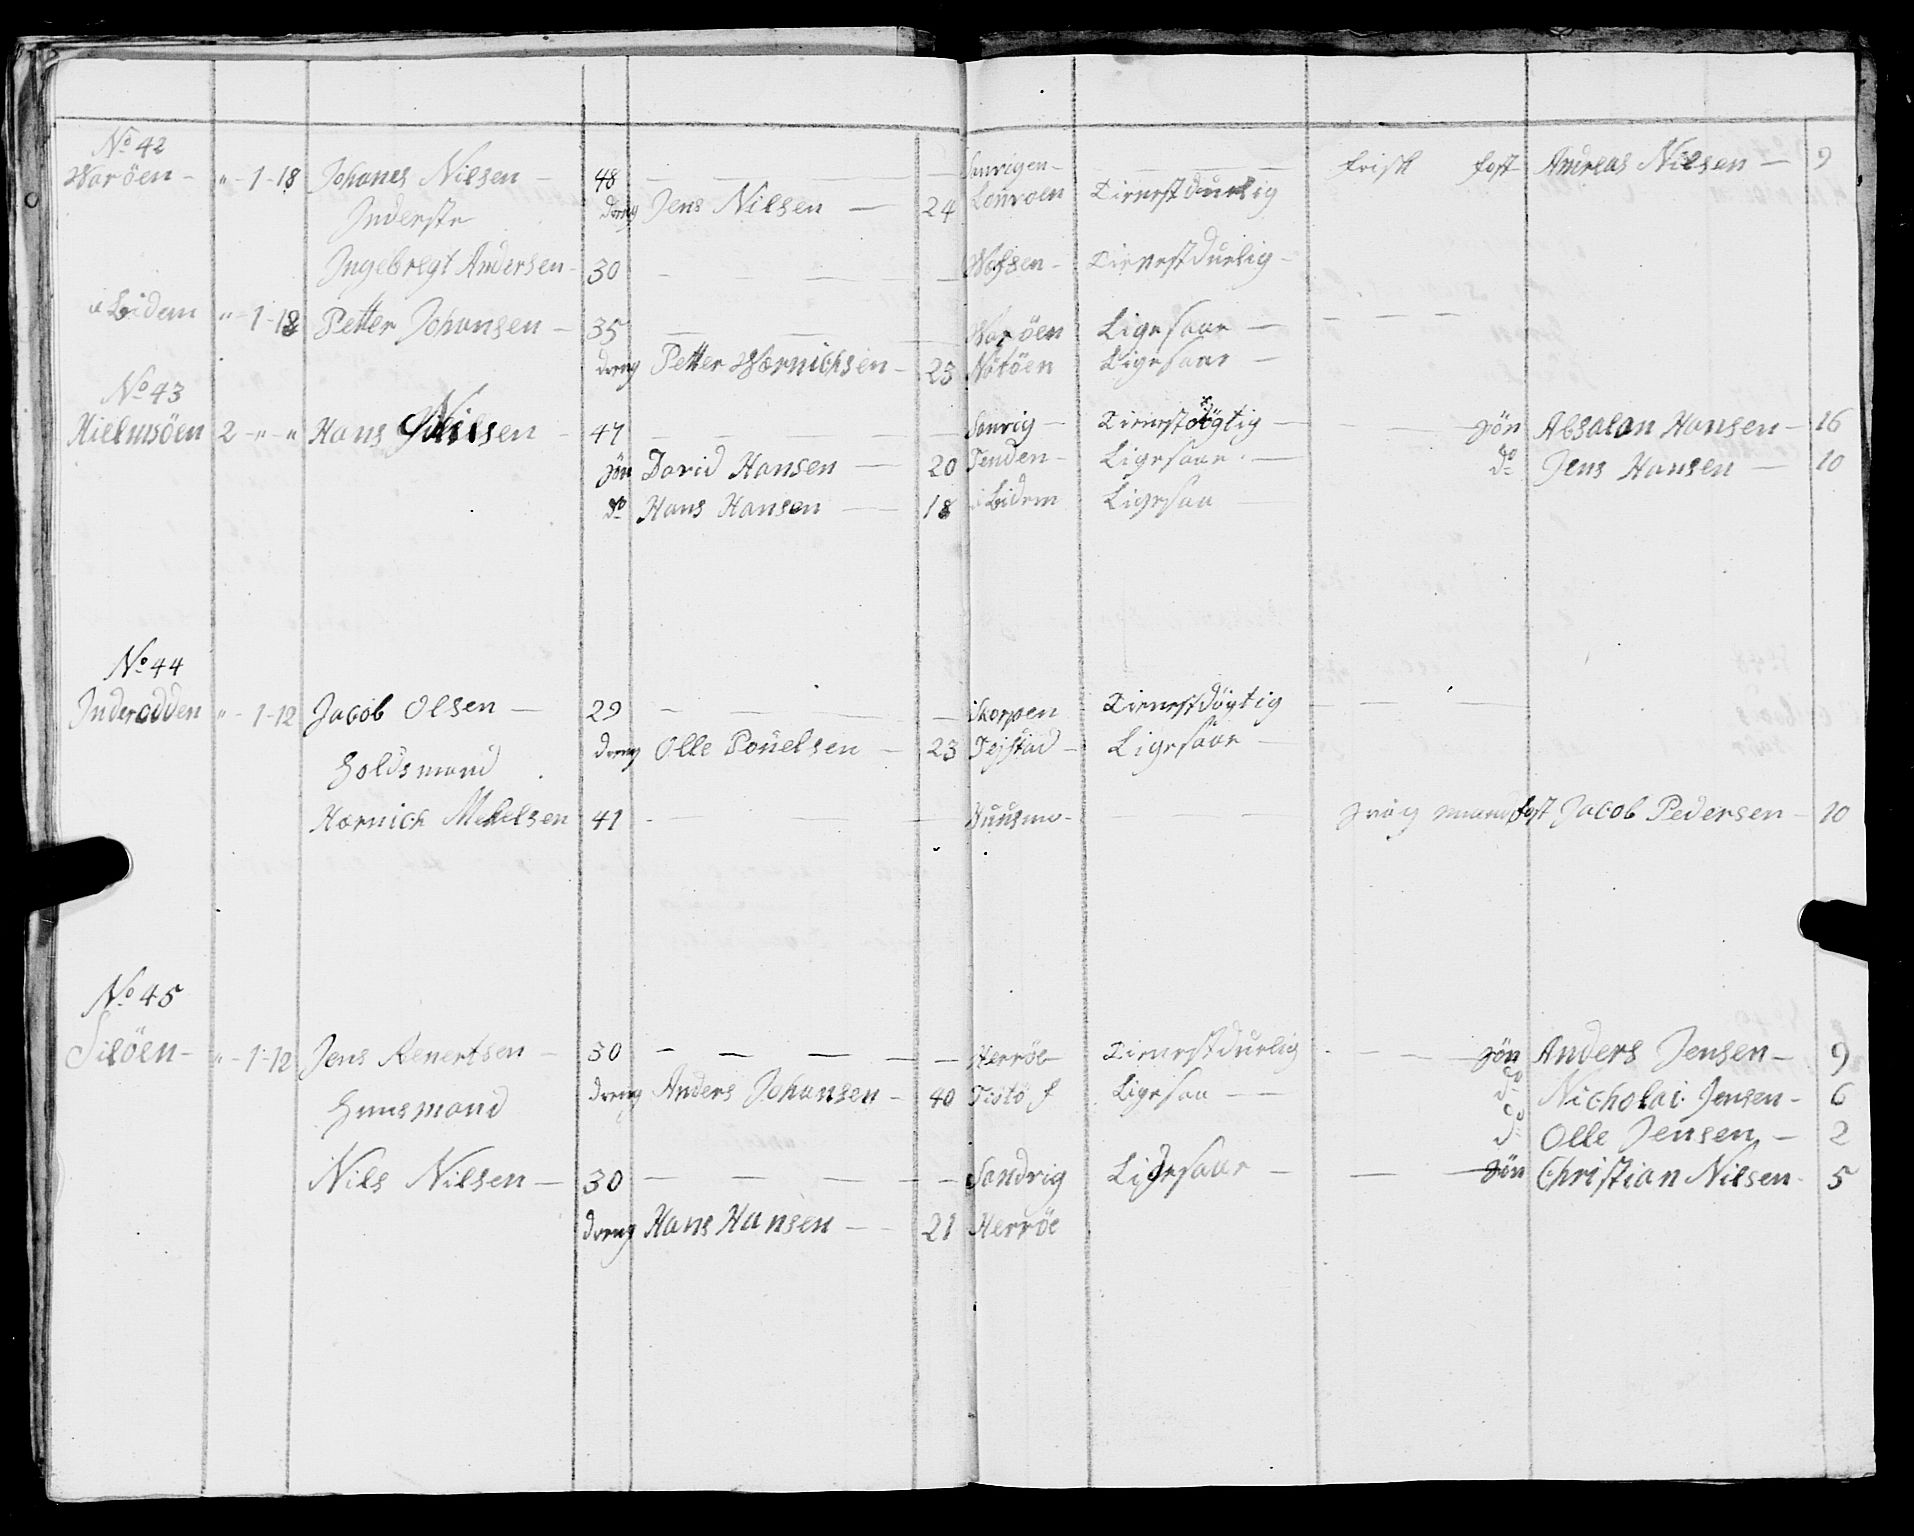 No 42
Waröen - " - 1 - 18 Johanes Nilsen - 48 — — — Sanrigen - — — frisk fost Andreas Nilsen — 9
Inderste dreng Jens Nilsen — 24 Lonroen Tienestduelig
Ingebregt Andersen - 30 - — — Wessen - Tienestduelig -
ibidem " - 1 - 18 Petter Johansen - 35 — — — Waröen Ligesaae — - — —
dreng Petter Wærnichsen - 23 Nötöen Ligesaae —
No 43
Hielmsöen 2 - " - " Hans Nilsen - 47 — — — Sanrig - Tienestdögtig — - — — Sön Absalon Hansen - 16
Sön David Hansen — 20 Tenden - Ligesaae - — do Jens Hansen — 10
do Hans Hansen — 18 ibidem Ligesaa —
No 44
Inderodden " - 1 - 12 Jacob Olsen — 29 — — — Skorpen Tienestdögtig - — - —
dreng Olle Pouelsen — 23 Tejstad - Ligesaae —
Holdsmand
Hærnich Mekelsen 41 - — — — Huusmo - — — Svag mand fost Jacob Pedersen - 10
No 45
Silöen - " - 1 - 12 Jens Aenertsen - 30 — — — — Herröe Tienestduelig - — — Sön Anders Jensen - 9
Huusmand dreng Anders Johansen - 40 Tiötö f Ligesaa — do Nicholai Jensen - 6
do Olle Jensen - 2
Nils Nilsen — 30 — — — — Sandrig Ligesaae — — — Sön Christian Nilsen - 5
dreng Hans Hansen — 21 Herröe